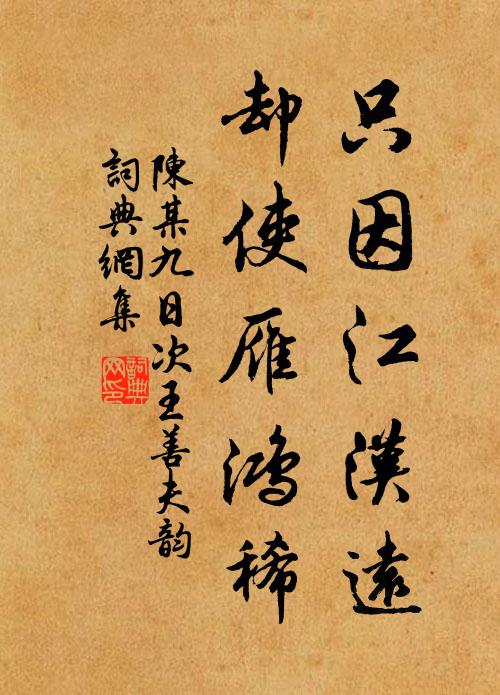 只因江漢遠
却使雁鴻稀
陳某九日次王善夫韵
詞典網集
詞典網印